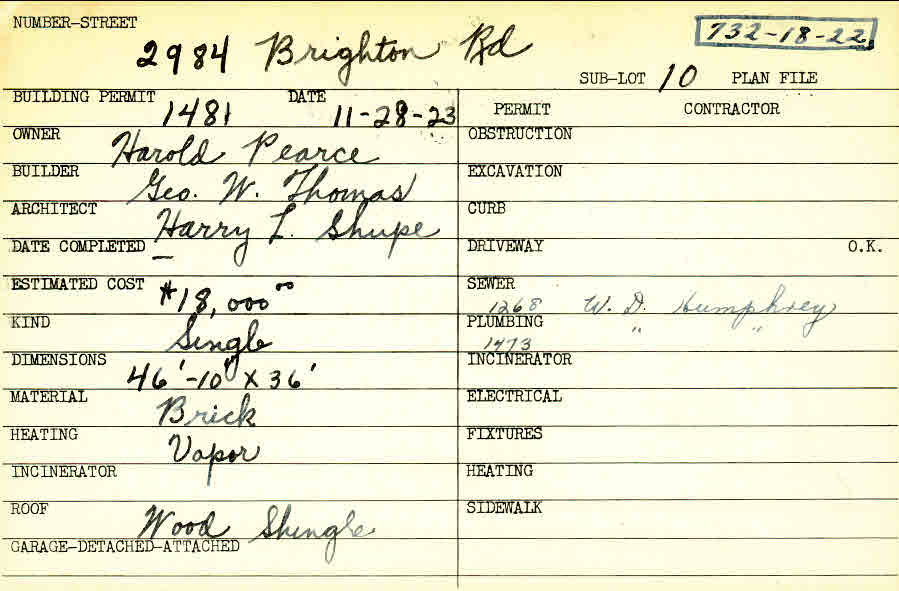 NUMBER-STREET
2984 Brighton Rd
732-18-22
SUB-LOT 10 PLAN FILE
BUILDING PERMIT 1481 DATE 11-28-23
PERMIT CONTRACTOR
OWNER Harold Pearce
OBSTRUCTION
BUILDER Geo. W. Thomas
EXCAVATION
ARCHITECT Harry L. Shupe
CURB
DATE COMPLETED —
DRIVEWAY O.K.
ESTIMATED COST $18,000.00
SEWER 1268 W. D. Humphrey
KIND Single
PLUMBING 1473 " "
DIMENSIONS 46'-10" X 36'
INCINERATOR
MATERIAL Brick
ELECTRICAL
HEATING Vapor
FIXTURES
INCINERATOR
HEATING
ROOF Wood Shingle
SIDEWALK
GARAGE-DETACHED-ATTACHED